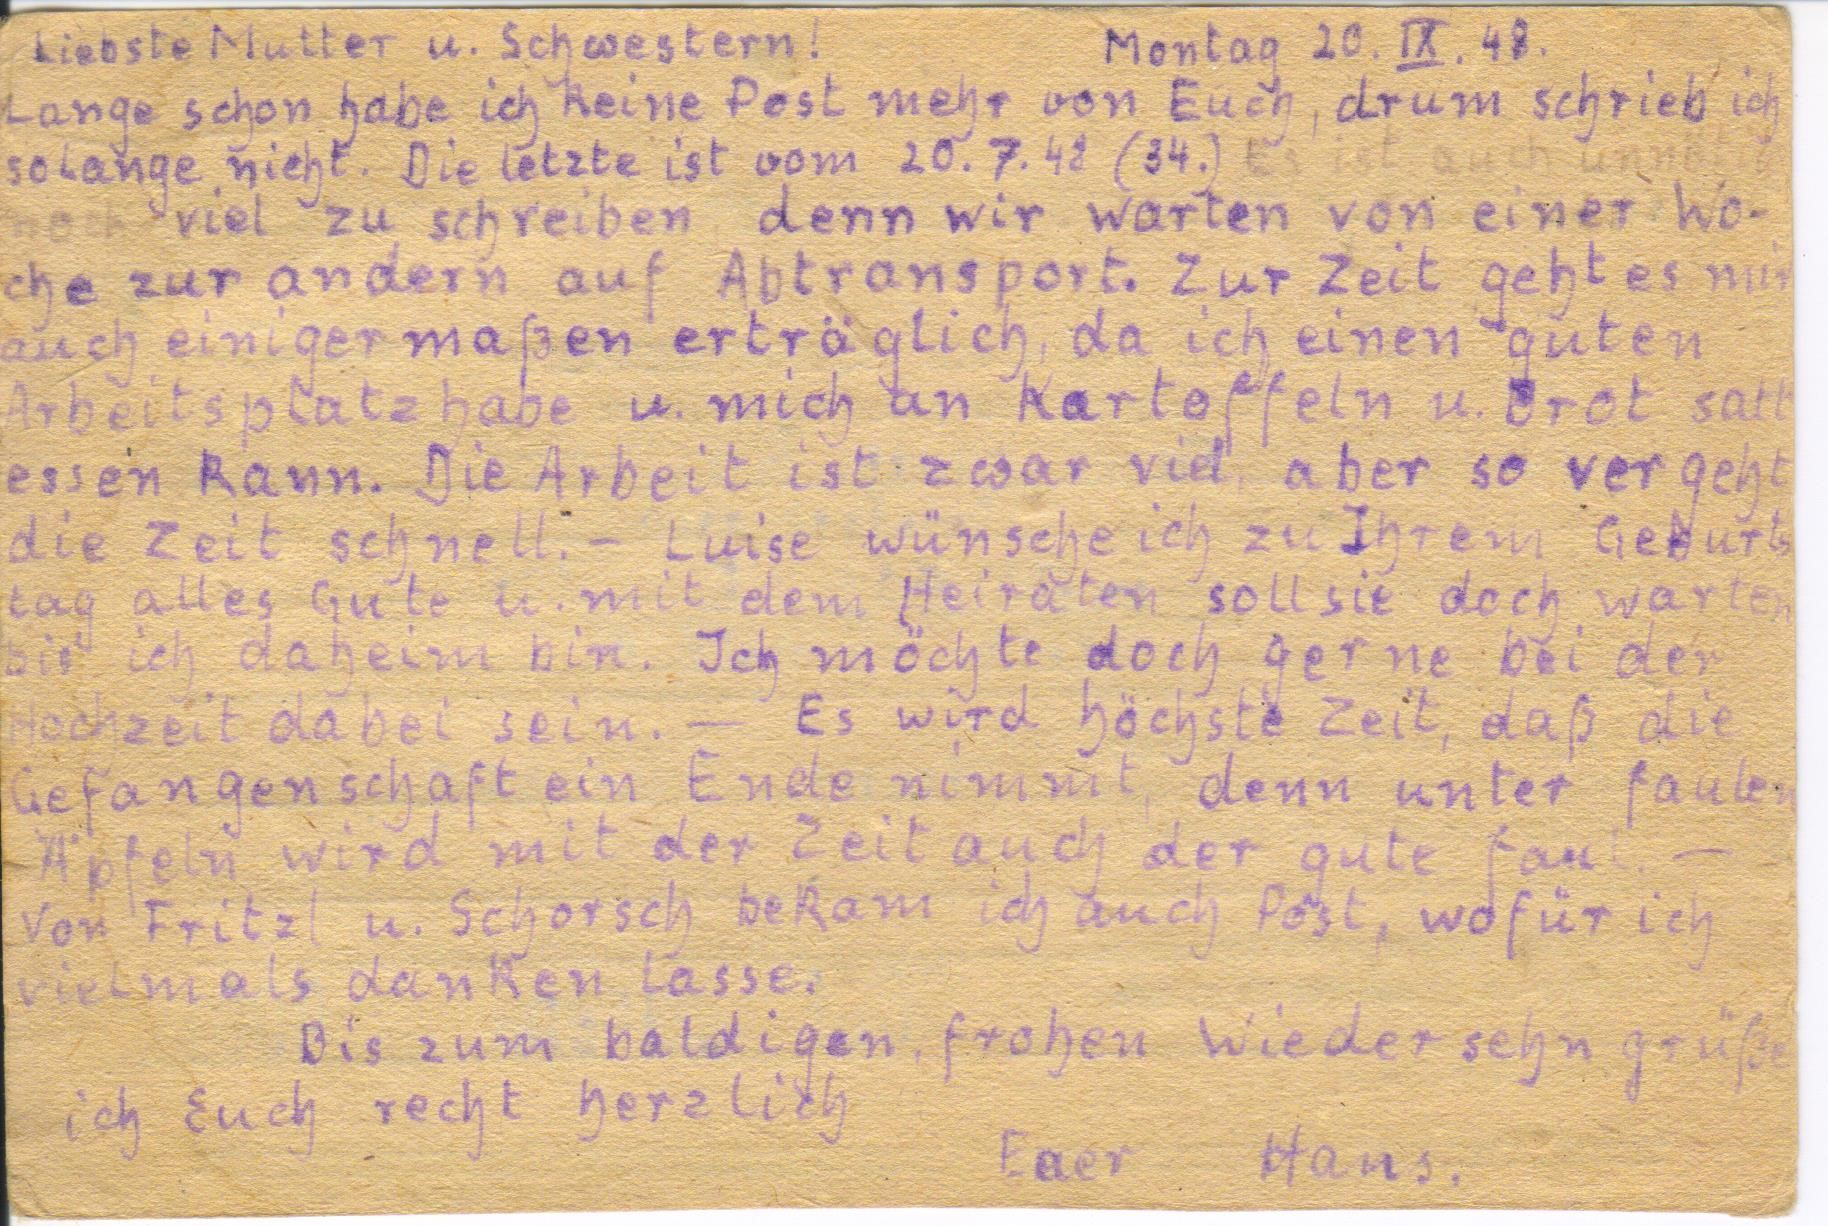 Liebste Mutter u. Schwestern! Montag 20. IX. 48.
Lange schon habe ich keine Post mehr von Euch, drum schrieb ich
solange nicht. Die letzte ist vom 20. 7. 48 (34.) Es ist auch unnötig
noch viel zu schreiben, denn wir warten von einer Wo-
che zur andern auf Abtransport. Zur Zeit geht es mir
auch einigermaßen erträglich, da ich einen guten
Arbeitsplatz habe u. mich an Kartoffeln u. Brot satt
essen kann. Die Arbeit ist zwar viel, aber so vergeht
die Zeit schnell. – Luise wünsche ich zu Ihrem Geburts
tag alles Gute u. mit dem Heiraten soll sie doch warten
bis ich daheim bin. Ich möchte doch gerne bei der
Hochzeit dabei sein. — Es wird höchste Zeit, daß die
Gefangenschaft ein Ende nimmt, denn unter faulen
Äpfeln wird mit der Zeit auch der gute faul. —
Von Fritzl u. Schorsch bekam ich auch Post, wofür ich
vielmals danken lasse.
Bis zum baldigen, frohen Wiedersehn grüße
ich Euch recht herzlich
Euer Hans.